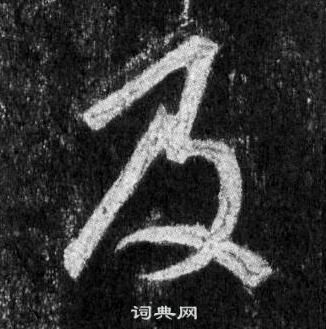 及
词典网